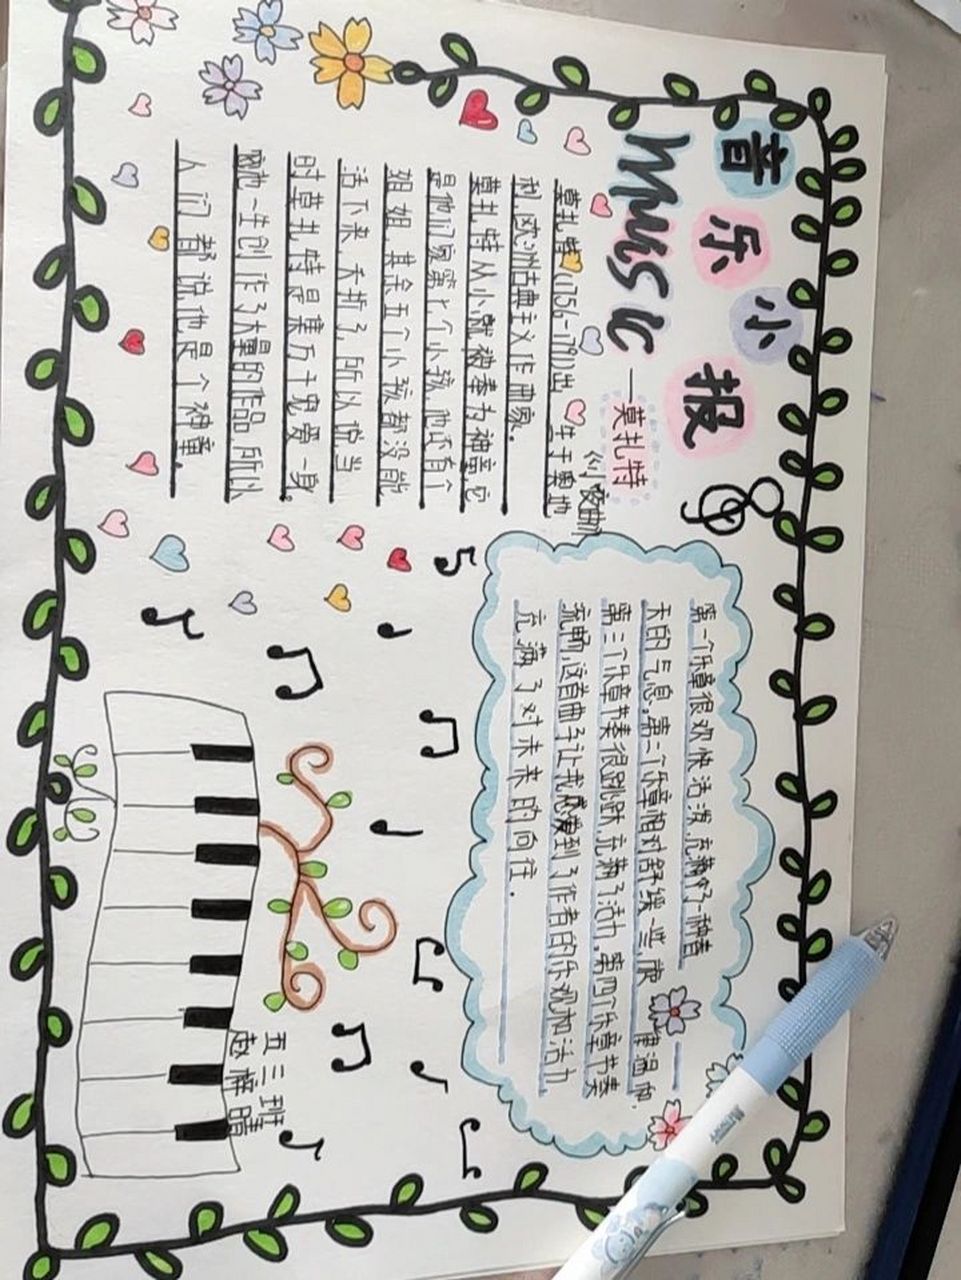 音乐小报
Music
—莫扎特
《小夜曲》
莫扎特(1756-1791)出生于奥地
利,欧洲古典主义作曲家。
莫扎特从小就被奉为神童,它
是他们家第七个小孩,他还有个
姐姐,其余五个小孩都没能
活下来,夭折了,所以说当
时莫扎特是集万千宠爱一身。
而他一生创作了大量的作品,所以
人们都说他是个神童。
第一个乐章很欢快活泼,充满了一种春
天的气息。第二个乐章相对舒缓一些,旋律温和,
第三个乐章节奏很跳跃,充满了活力,第四个乐章节奏
流畅,这首曲子让我感受到了作者的乐观和活力
充满了对未来的向往.
五三班
赵梓晴